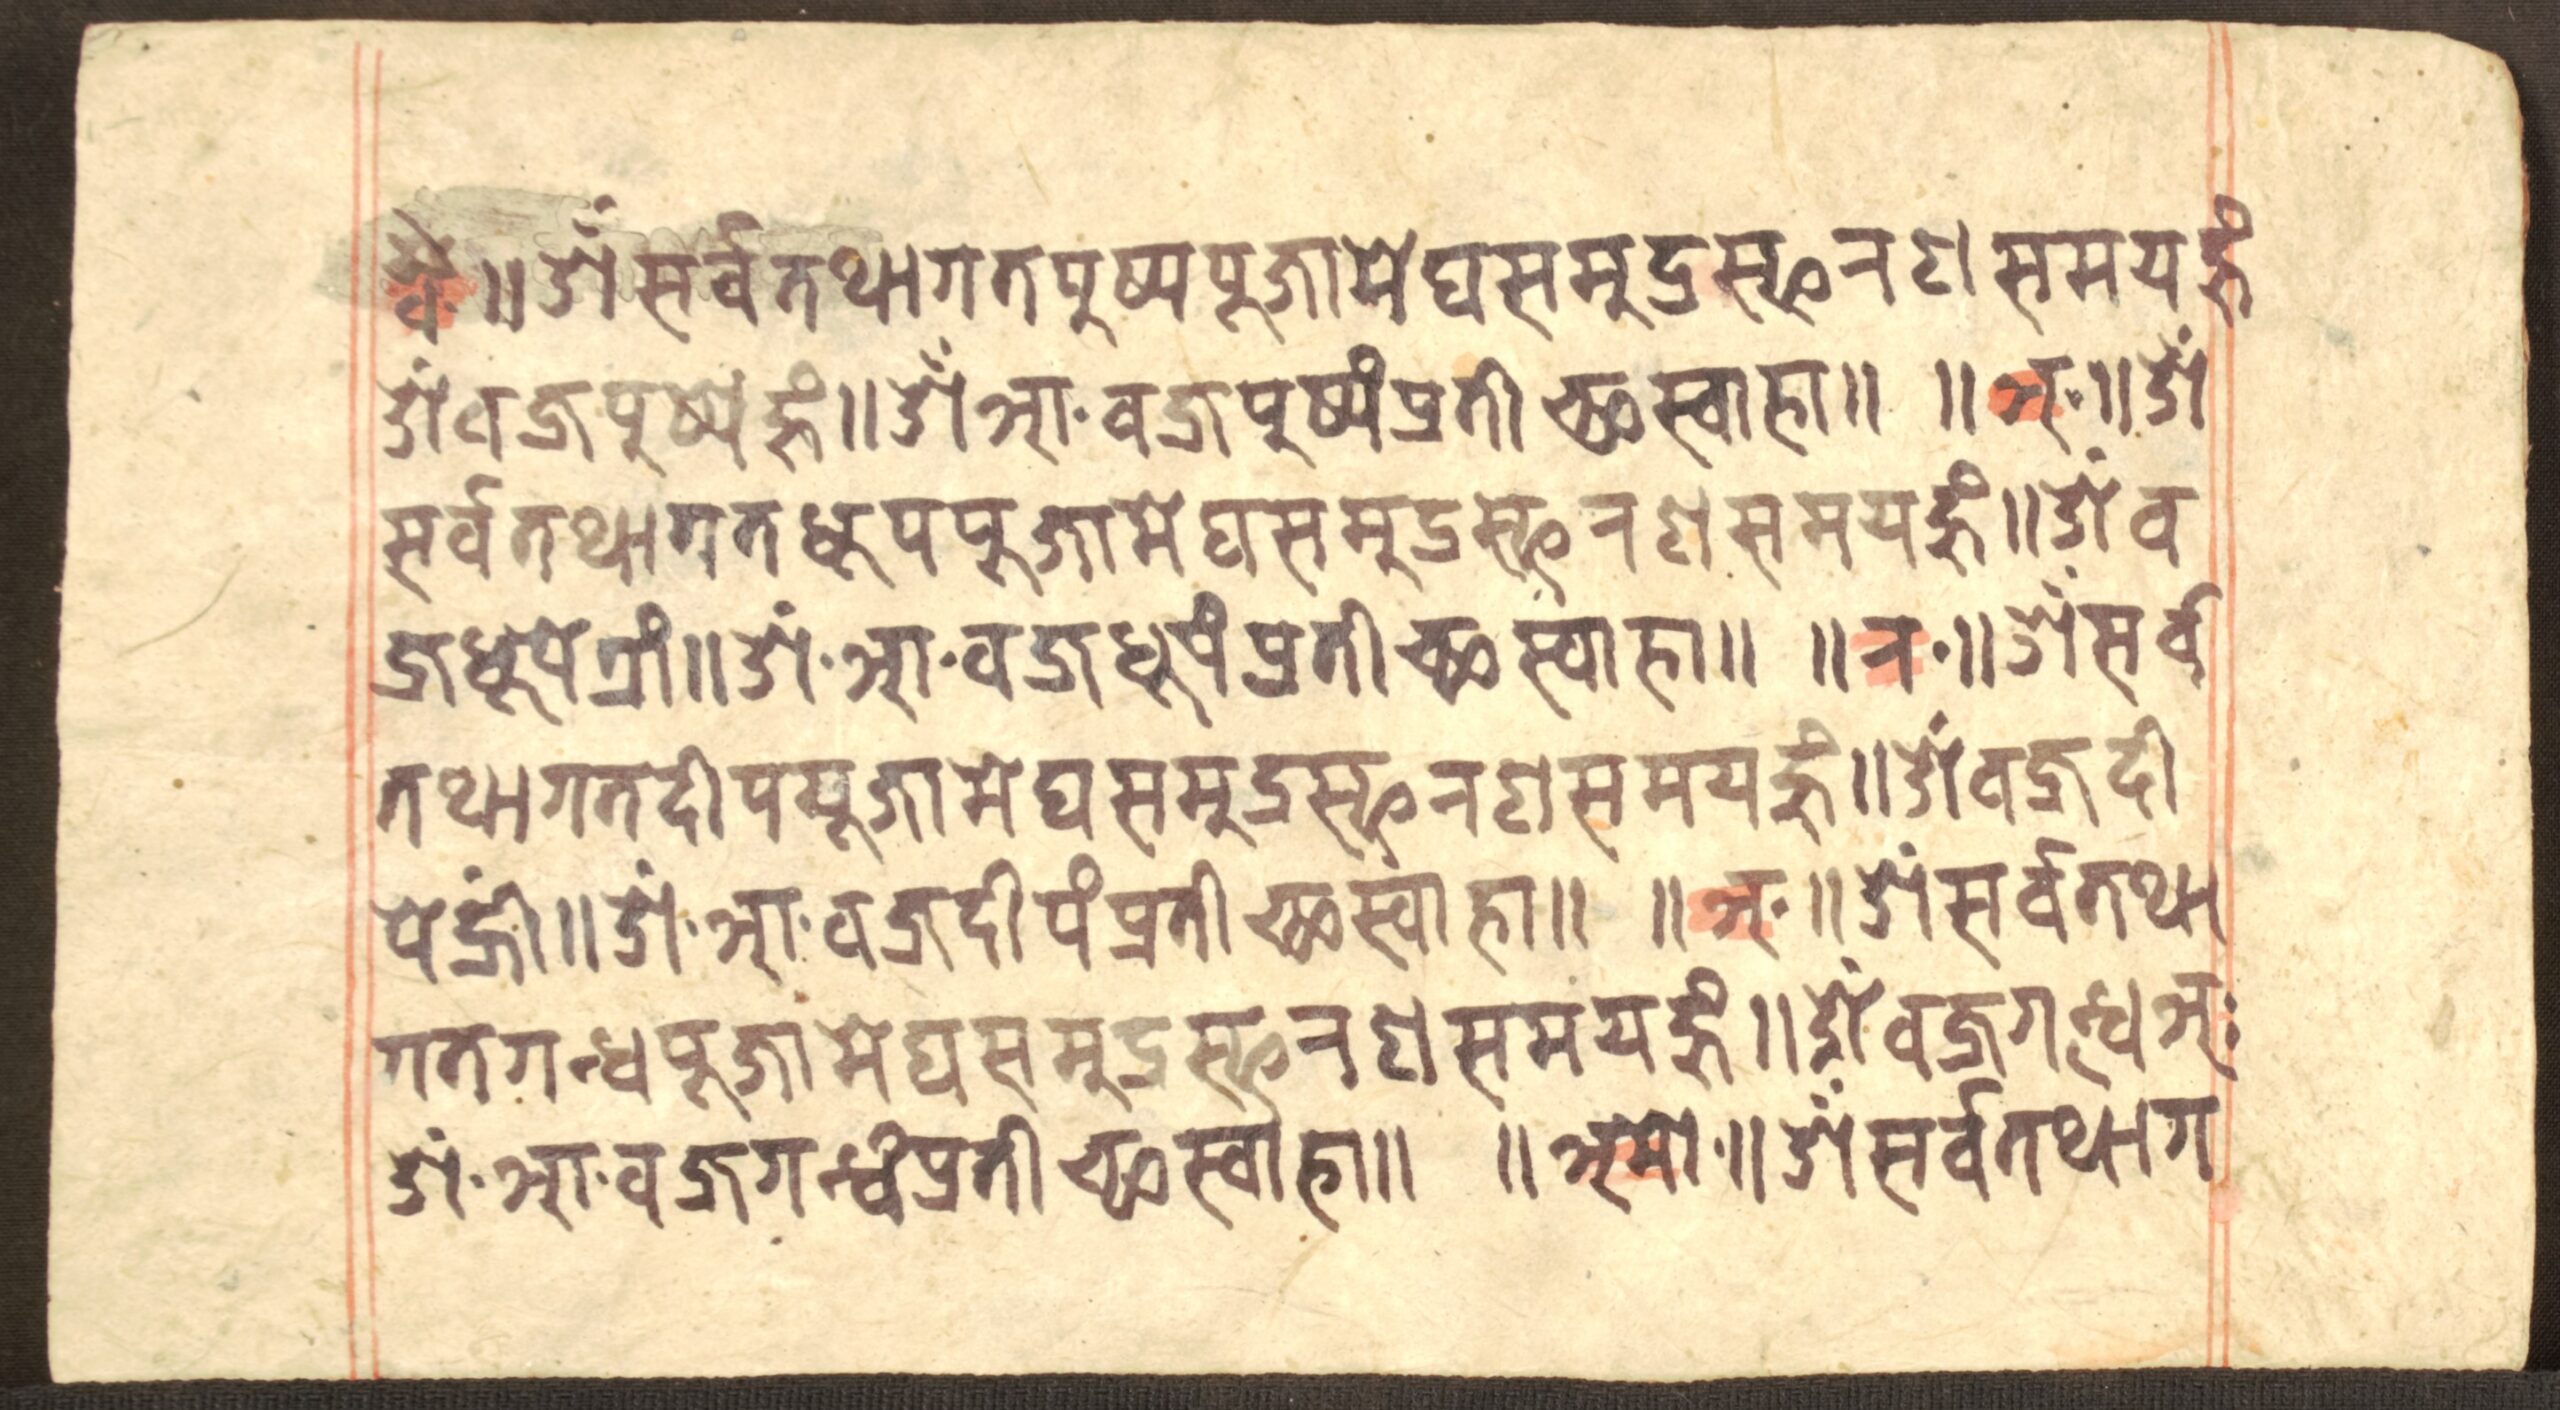 वं॰॥ ॐ सर्व्वतथागतपुष्पपूजामेघसमुद्रस्फनणसमयहूँ
ॐ वज्रपुष्पेहूँ॥ ॐ आः वज्रपुष्पंप्रतीच्छस्वाहा॥ ॥अ॰॥ ॐ
सर्वतथागतधूपपूजामेघसमुद्रस्फनणसमयहूँ॥ ॐ व
ज्रधूपेत्रीं॥ ॐ॰आ॰वज्रधूपंप्रतीच्छस्वाहा॥ ॥न॰॥ ॐ सर्व
तथागतदीपपूजामेघसमुद्रस्फनणसमयहूँ॥ ॐ वज्रदी
पेह्रीं॥ ॐ॰आ॰वज्रदीपंप्रतीच्छस्वाहा॥ ॥अ॰॥ ॐ सर्वतथा
गतगन्धपूजामेघसमुद्रस्फनणसमयहूँ॥ ॐ वज्रगन्धअः
ॐ॰आ॰वज्रगन्धंप्रतीच्छस्वाहा॥ ॥अमो॰॥ ॐ सर्वतथाग